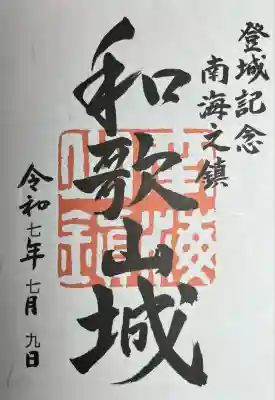 登城記念
南海之鎮
和歌山城
令和七年 七月 九日